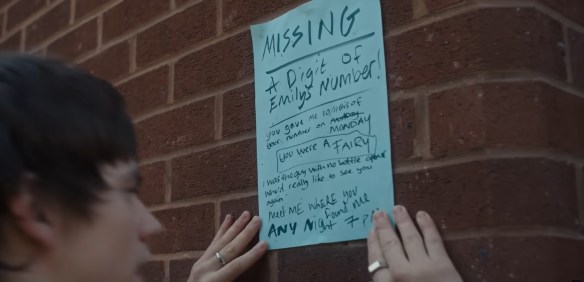 MISSING
A Digit of
Emilys Number!
you gave me 10/11ths of
your number on MONDAY
YOU WERE A FAIRY
I was the guy with no bottle opener
who'd really like to see you
again
MEET ME WHERE YOU
found me
ANY Night 7 PM